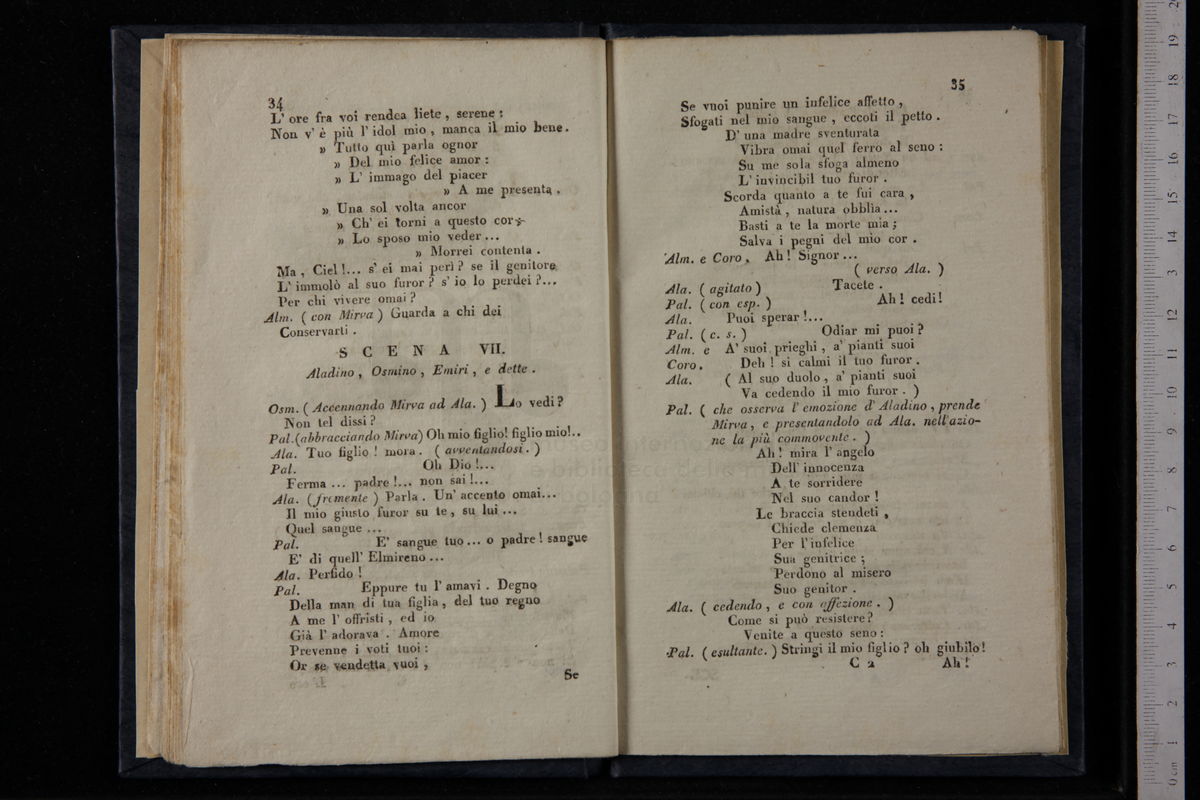 34
L' ore fra voi rendea liete, serene:
Non v' è più l' idol mio, manca il mio bene.
» Tutto quì parla ognor
» Del mio felice amor:
» L' immago del piacer
» A me presenta.
» Una sol volta ancor
» Ch' ei torni a questo cor
» Lo sposo mio veder...
» Morrei contenta.
Ma, Ciel!... s' ei mai perì? se il genitore
L' immolò al suo furor? s' io lo perdei?...
Per chi vivere omai?
Alm. (con Mirva) Guarda a chi dei
Conservarti.
SCENA VII.
Aladino, Osmino, Emiri, e dette.
Osm. (Accennando Mirva ad Ala.) Lo vedi?
Non tel dissi?
Pal. (abbracciando Mirva) Oh mio figlio! figlio mio!..
Ala. Tuo figlio! mora. (avventandosi.)
Pal. Oh Dio!...
Ferma... padre!... non sai!...
Ala. (fremente) Parla. Un' accento omai...
Il mio giusto furor su te, su lui...
Quel sangue...
Pal. E' sangue tuo... o padre! sangue
E' di quell' Elmireno...
Ala. Perfido!
Pal. Eppure tu l' amavi. Degno
Della man di tua figlia, del tuo regno
A me l' offristi, ed io
Già l' adorava. Amore
Prevenne i voti tuoi:
Or se vendetta vuoi,
Se
35
Se vuoi punire un infelice affetto,
Sfogati nel mio sangue, eccoti il petto.
D' una madre sventurata
Vibra omai quel ferro al seno:
Su me sola sfoga almeno
L' invincibil tuo furor.
Scorda quanto a te fui cara,
Amistà, natura obblìa...
Basti a te la morte mia;
Salva i pegni del mio cor.
Alm. e Coro. Ah! Signor...
(verso Ala.)
Ala. (agitato) Tacete.
Pal. (con esp.) Ah! cedi!
Ala. Puoi sperar!...
Pal. (c. s.) Odiar mi puoi?
Alm. e A' suoi prieghi, a' pianti suoi
Coro. Deh! si calmi il tuo furor.
Ala. (Al suo duolo, a' pianti suoi
Va cedendo il mio furor.)
Pal. (che osserva l' emozione d' Aladino, prende
Mirva, e presentandolo ad Ala. nell' azio-
ne la più commovente.)
Ah! mira l' angelo
Dell' innocenza
A te sorridere
Nel suo candor!
Le braccia stendeti,
Chiede clemenza
Per l' infelice
Sua genitrice;
Perdono al misero
Suo genitor.
Ala. (cedendo, e con affezione.)
Come si può resistere?
Venite a questo seno:
Pal. (esultante.) Stringi il mio figlio? oh giubilo!
C 2 Ah!